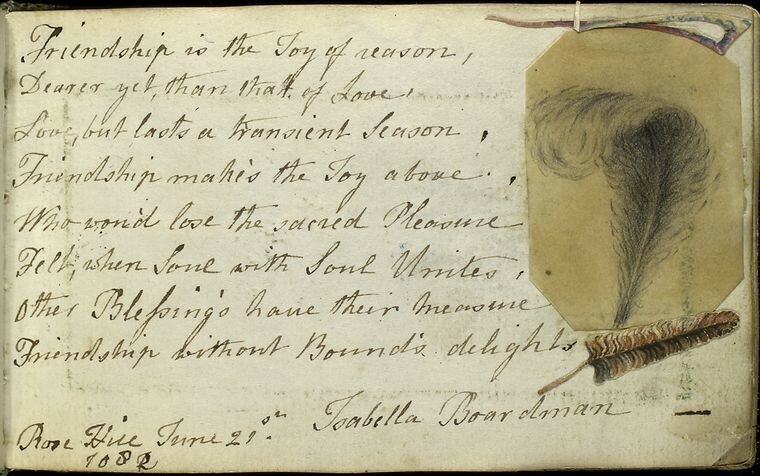 Friendship is the Joy of reason,
Dearer yet, than that of Love,
Love, but lasts a transient Season,
Friendship makes the Joy above.
Who wou'd lose the sacred Pleasure
Felt, when Soul with Soul Unites,
Other Blessings have their measure
Friendship without Bounds delights
Isabella Boardman
Rose Hill June 21st